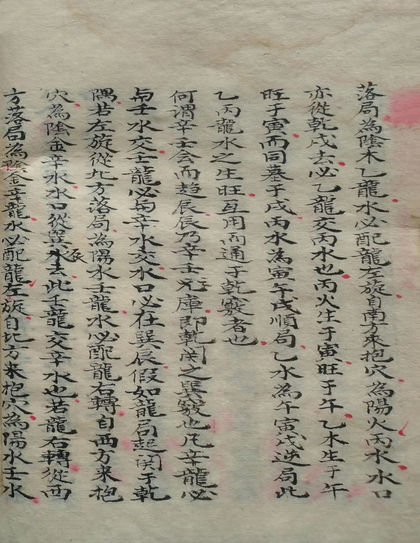 落局為陰木乙龍水必配龍左旋自南方來抱穴為陽火丙水水口
亦從乾戌去必乙龍交丙水也丙火生于寅旺于午乙木生于午
旺于寅而同墓于戌丙水為寅午戌順局乙水為午寅戌逆局此
乙丙龍水之生旺互用而通于乾竅者也
何謂辛壬会而趋辰辰乃辛壬兄庫即乾関之巽竅也凡辛龍必
与壬水交壬龍必与辛水交水口必在巽辰假如龍局起関于乾
隅若左旋從北方落局為陽水壬龍水必配龍右轉自西方來抱
穴為陰金辛水水口從巽辰去此壬龍交辛水也若龍右轉從西
方落局為陰金辛龍水必配龍左旋自北方來抱穴為陽水壬水